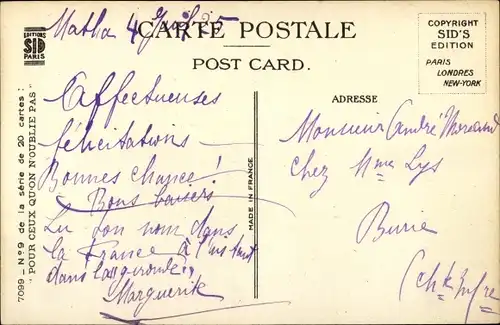 Matha 4 Juil 25
CARTE POSTALE
POST CARD.
EDITIONS
SID
PARIS
COPYRIGHT
SID'S
EDITION
PARIS
LONDRES
NEW-YORK
7099 - N° 9 de la série de 20 cartes :
"POUR CEUX QU'ON N'OUBLIE PAS"
Affectueuses
félicitations
Bonnes chance !
Bons baisers
Lu ton nom dans
la France à l'instant
dans la gironde
Marguerite
MADE IN FRANCE
ADRESSE
Monsieur André Moreaud
chez Mme Lys
Burie
(chte Infre